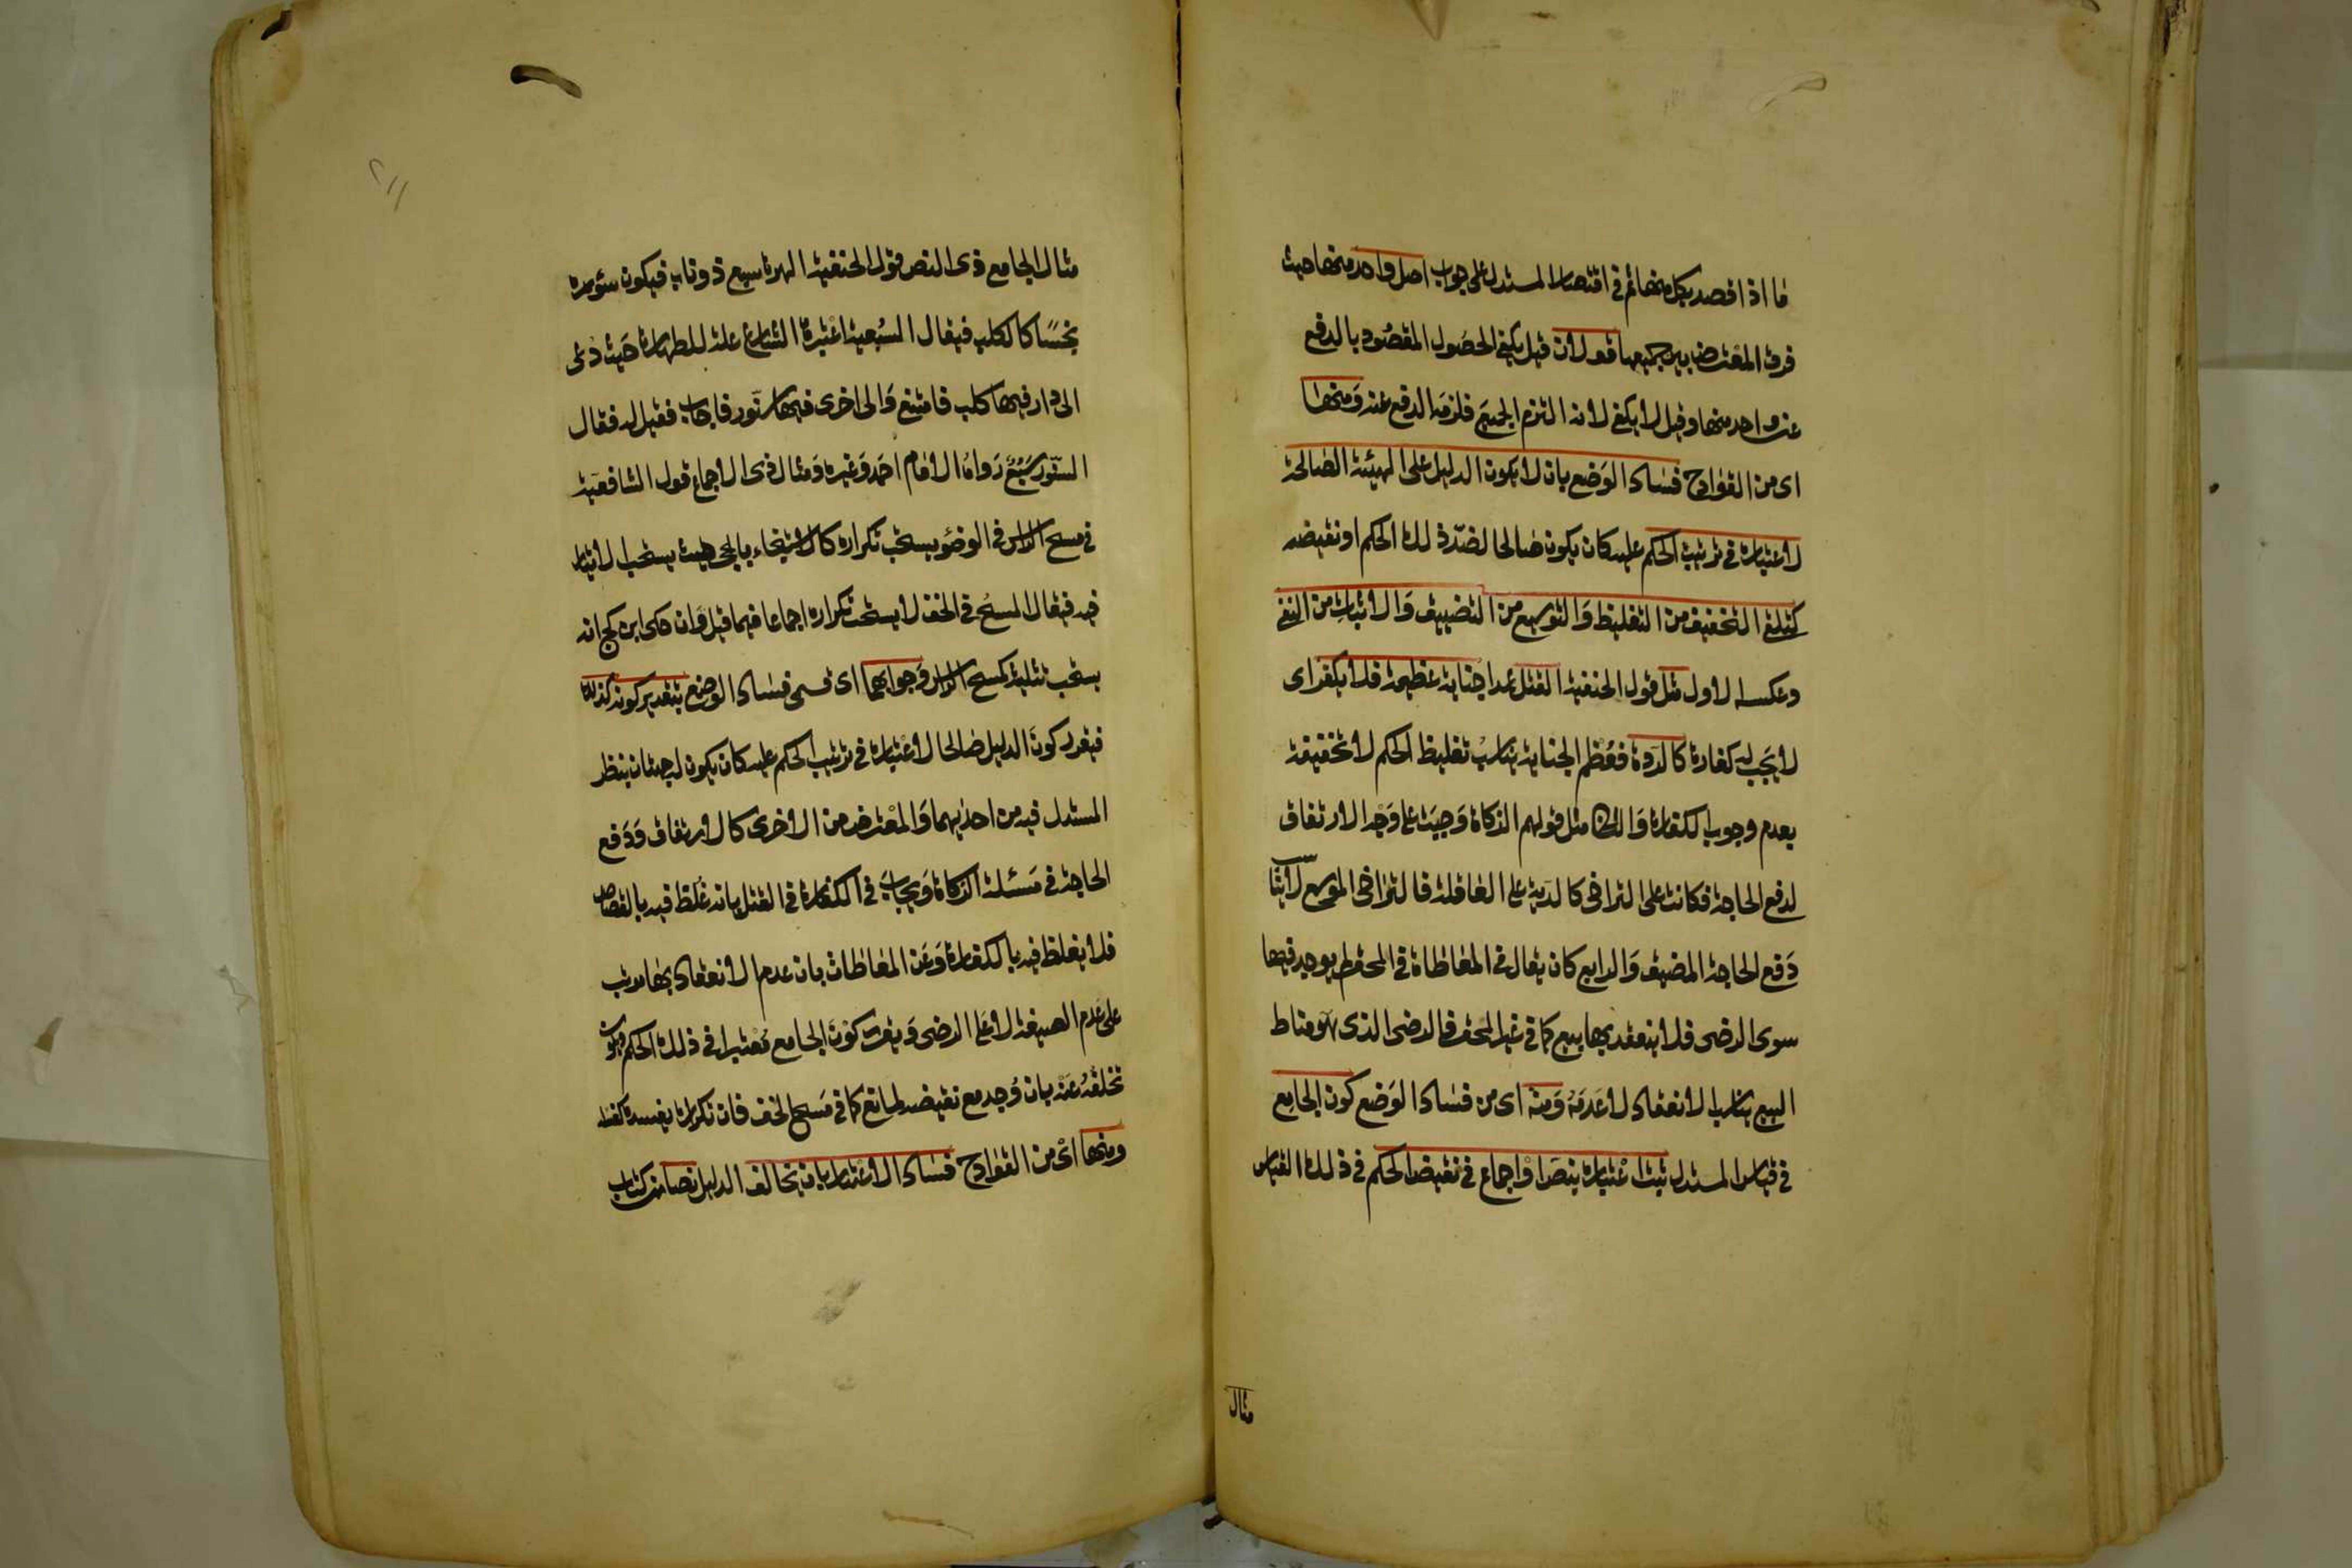 ما اذا قصد بكل منها ثم في اقتصار المستدل على جواب اصل واحد منها حيث
فرق المعترض بين جميعها قولان قيل يكفي لحصول المقصود بالدفع
عن واحد منها وقيل لا يكفي لانه التزم الجميع فلزمه الدفع عنه ومنها
اي من القوادح فساد الوضع بان لا يكون الدليل على الهيئة الصالحة
لاعتباره في ترتيب الحكم عليه كان يكون صالحا لضد ذلك الحكم او نقيضه
كتلقي التخفيف من التغليظ والتوسيع من التضييق والاثبات من النفي
وعكسه الاول مثل قول الحنفية القتل عمدا جناية عظيمة فلا يكفر اي
لا يجب له كفارة كالردة فعظم الجناية يناسب تغليظ الحكم لا تخفيفه
بعدم وجوب الكفارة والثاني مثل قولهم الزكاة وجبت على وجه الارتفاق
لدفع الحاجة فكانت على التراخي كالدية على العاقلة فالتراخي الموسع لا يناسب
دفع الحاجة المضيق والرابع كان يقال في المعاطاة في المحقر لم يوجد فيها
سوى الرضى فلا ينعقد بها بيع كما في غير المحقر فالرضى الذي هو مناط
البيع يناسب الانعقاد لا عدمه ومنه اي من فساد الوضع كون الجامع
في قياس المستدل ثبت اعتباره بنص او اجماع في نقيض الحكم في ذلك القياس
مثال
مثال الجامع ذي النص قول الحنفية الهرة سبع ذو ناب فيكون سؤره
نجسا كالكلب فيقال السبعية اعتبرها الشارع علة للطهارة حيث دعي
الى دار فيها كلب فامتنع والى اخرى فيها سنور فاجاب فقيل له فقال
السنور سبع رواه الامام احمد وغيره ومثال ذي الاجماع قول الشافعية
في مسح الراس في الوضوء يستحب تكراره كالاستنجاء بالحجر حيث يستحب الايتار
فيه فيقال المسح في الخف لا يستحب تكراره اجماعا فيما قيل وان حكى ابن كج انه
يستحب تثليثه كمسح الراس وجوابهما اي قسمي فساد الوضع بتقدير كونه كذلك
فيقرر كون الدليل صالحا لاعتباره في ترتيب الحكم عليه كان يكون له جهتان ينظر
المستدل فيه من احداهما والمعترض من الاخرى كالارتفاق ودفع
الحاجة في مسئلة الزكاة ويجاب في الكفارة في القتل بانه غلظ فيه بالقصاص
فلا يغلظ فيه بالكفارة وعن المعاطات بان عدم الانعقاد بها مرتب
على عدم الصيغة لا على الرضى ويقرر كون الجامع معتبرا في ذلك الحكم ويكون
تخلفه عنه بان وجد مع نقيضه لمانع كما في مسح الخف فان تكراره يفسده كغسله
ومنها اي من القوادح فساد الاعتبار بان يخالف الدليل نصا من كتاب